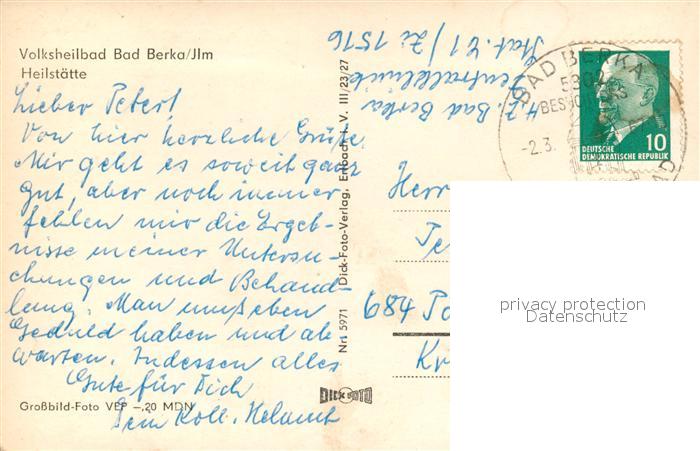 Volksheilbad Bad Berka/Jlm
Heilstätte
Lieber Peter!
Von hier herzliche Grüße.
Mir geht es soweit ganz
gut, aber noch immer
fehlen mir die Ergeb-
nisse meiner Untersu-
chungen und Behand-
lung. Man muß eben
Geduld haben und ab
warten. Indessen alles
Gute für Dich
Dein Koll. Helmut
Großbild-Foto VEP -,20 MDN
Nr. 5971 Dick-Foto-Verlag, Erlbach i. V. III/23/27
DICK FOTO
H.J. Bad Berka
Zentralklinik
Stat. Z1/Zi 1516
BAD BERKA
5302
-2.3.
10
DEUTSCHE
DEMOKRATISCHE REPUBLIK
Herr
684 Pö
Kr
privacy protection
Datenschutz